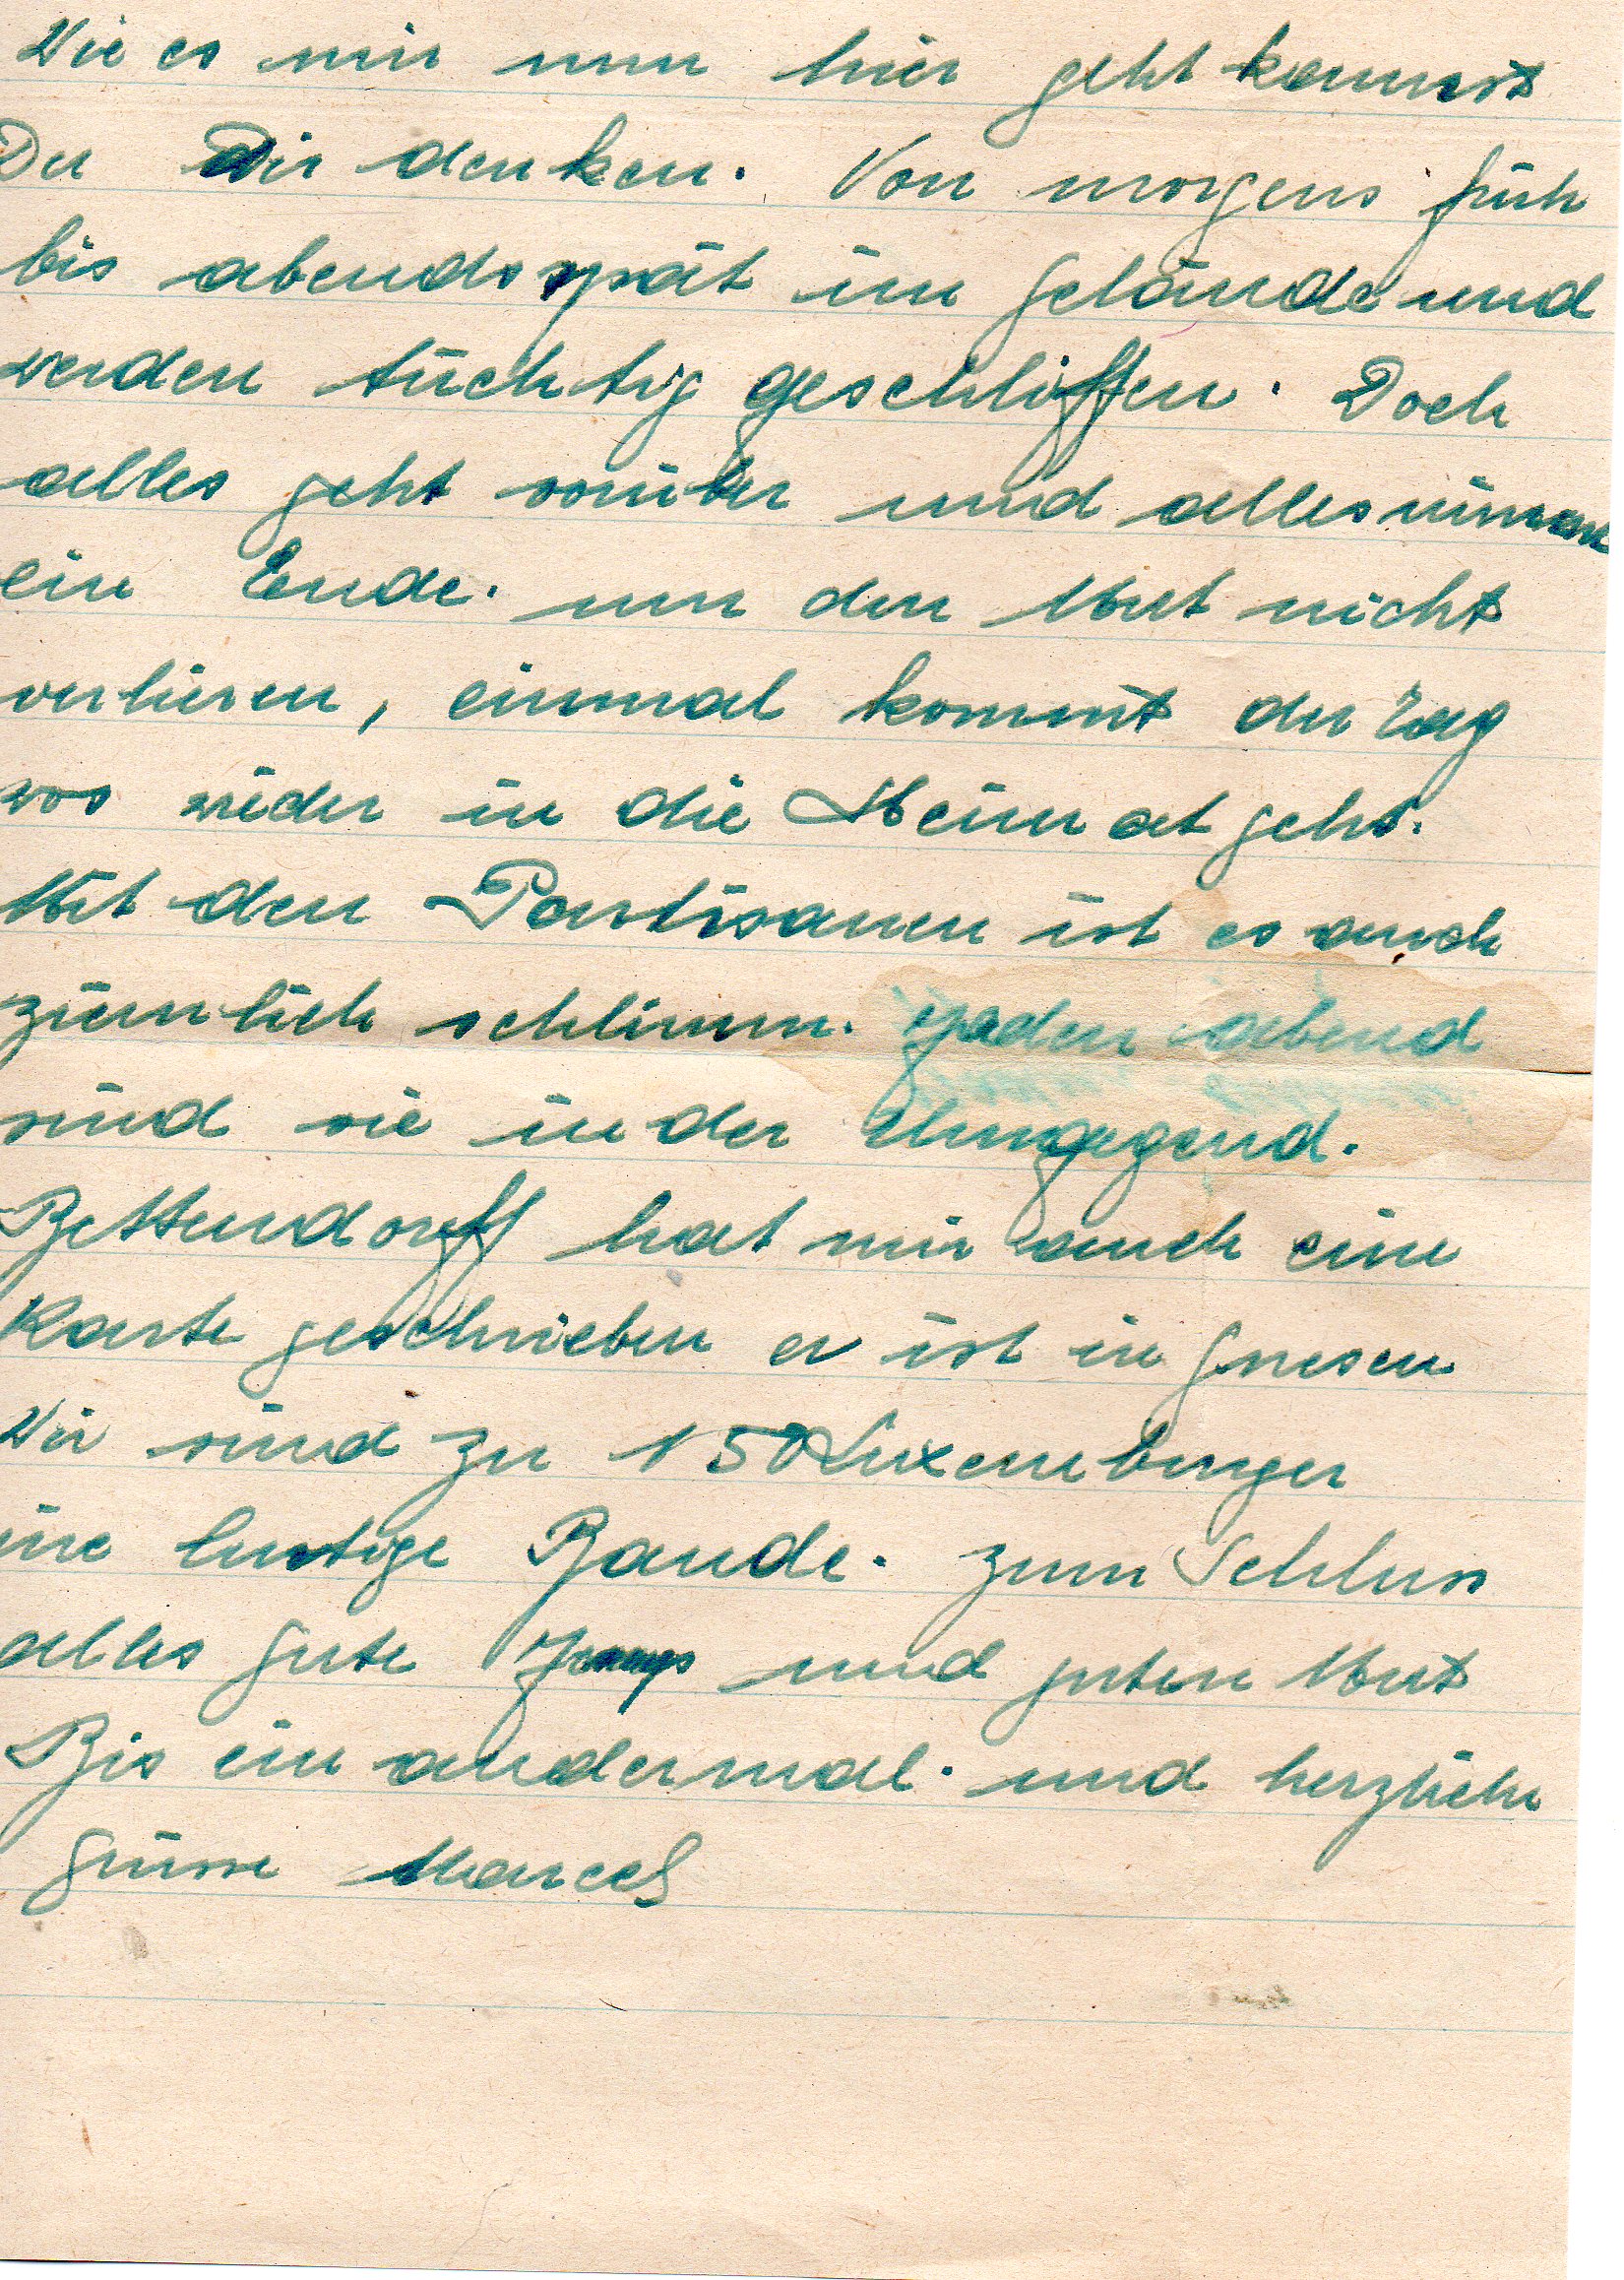 Wie es mir nun hier geht kannst
Du Dir denken. Von morgens früh
bis abends spät im Gelände und
werden tüchtig geschliffen. Doch
alles geht vorüber und alles nimmt
ein Ende. nur den Mut nicht
verlieren, einmal kommt der Tag
wos wider in die Heimat geht.
Mit den Partisanen ist es auch
ziemlich schlimm. Jeden abend
sind sie in der Umgegend.
Bettendorff hat mir auch eine
Karte geschrieben er ist in Gnesen
Wir sind zu 150 Luxemburger
ine lustige Bande. Zum Schluss
alles gute und guten Mut
Bis ein andermal. und herzliche
Grüsse Marcel